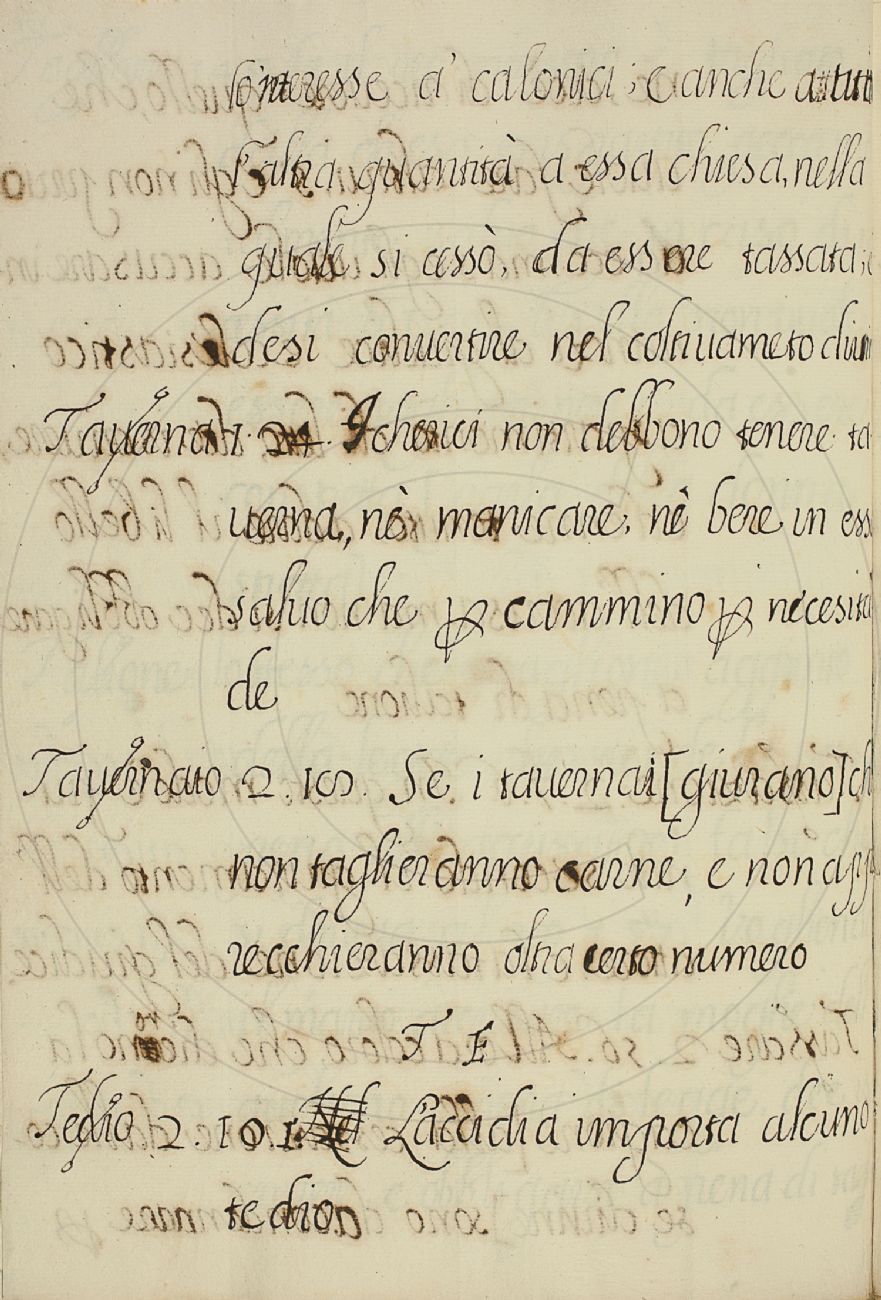 lo'nteresse a' calonici; e anche
l'altra quantità a essa chiesa, nella
quale si cessò, da essere tassata;
desi conuertire nel coltiuameto
Tauerna 1. 24. I cherici non debbono tenere ta
uerna, nè manicare, nè bere in ess
saluo che ꝑ cammino ꝑ necesità
de
Tauernaio 2. 100. Se i tauernai [giurano] ch
non taglieranno carne, e non app
recchieranno oltra certo numero
T E
Tedio 2. 101. L'accidia importa alcuno
tedio